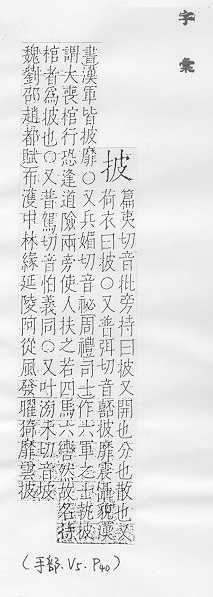 字彙
披
篇夷切音批旁持曰披又開也分也散也又
荷衣曰披〇又普弭切音諀披靡震懾貌漢
書漢軍皆披靡〇又兵媚切音祕周禮司士作六軍之士執披
謂大喪棺行恐逢道險兩旁使人扶之若四馬六轡然故名持
棺者爲披也〇又普駕切音怕義同〇又叶滂禾切音坡
魏劉邵趙都賦布濩中林緣延陵阿從風發曜猗靡雲披
(手部.V5.P40)